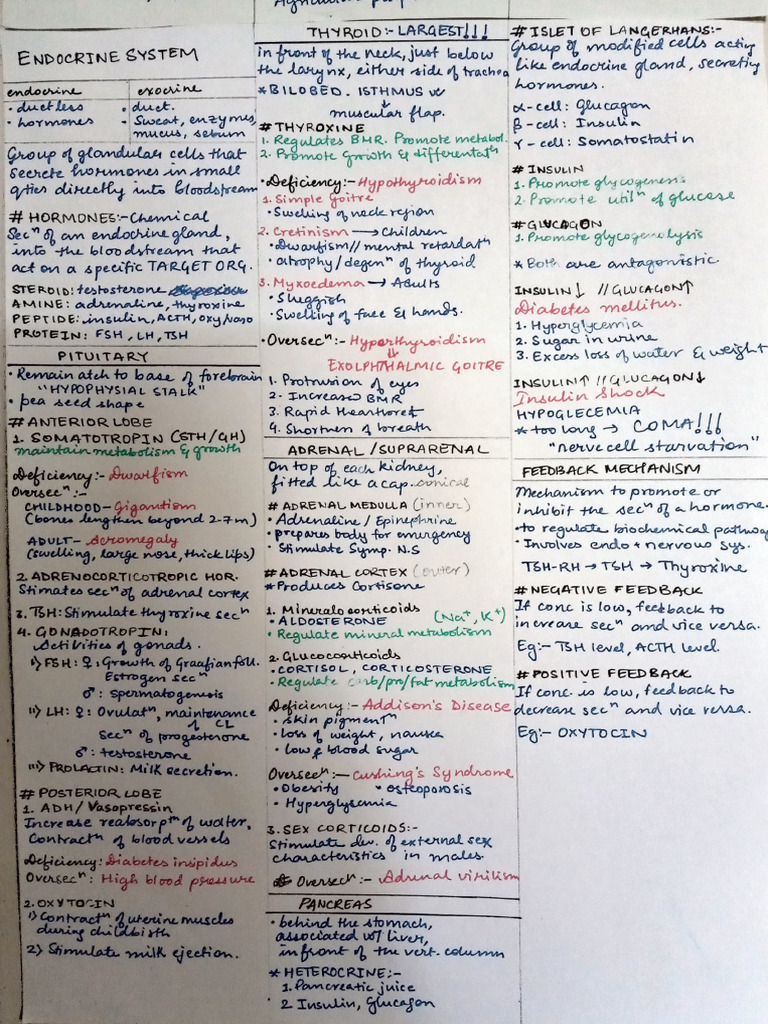 ENDOCRINE SYSTEM
endocrine exocrine
• ductless • duct.
• hormones • Sweat, enzymes, mucus, sebum
Group of glandular cells that
secrete hormones in small
qties directly into bloodstream
# HORMONES:- Chemical
Secⁿ of an endocrine gland,
into the bloodstream that
act on a specific TARGET ORG.
STEROID: testosterone
AMINE: adrenaline, thyroxine
PEPTIDE: insulin, ACTH, oxy/vaso
PROTEIN: FSH, LH, TSH
PITUITARY
• Remain atch to base of forebrain
"HYPOPHYSIAL STALK"
• pea seed shape
# ANTERIOR LOBE
1. SOMATOTROPIN (STH/GH)
maintain metabolism & growth
Deficiency:- Dwarfism
Oversecⁿ:-
CHILDHOOD- Gigantism
(bones lengthen beyond 2-7m)
ADULT- Acromegaly
(swelling, large nose, thick lips)
2. ADRENOCORTICOTROPIC HOR.
Stimates secⁿ of adrenal cortex
3. TSH: Stimulate thyroxine secⁿ
4. GONADOTROPIN:
Activities of gonads.
i) FSH: ♀: Growth of Graafian foll.
Estrogen secⁿ
♂: spermatogenesis
ii) LH: ♀: Ovulatⁿ, maintenance
↑ CL
secⁿ of progesterone
♂: testosterone
iii) PROLACTIN: Milk secretion.
# POSTERIOR LOBE
1. ADH/Vasopressin
Increase reabsorpᵗⁿ of water,
Contractⁿ of blood vessels
Deficiency: Diabetes insipidus
Oversecⁿ: High blood pressure
2. OXYTOCIN
1) Contractⁿ of uterine muscles
during childbirth
2) Stimulate milk ejection.
THYROID:- LARGEST!!!
in front of the neck, just below
the larynx, either side of trachea
* BILOBED. ISTHMUS
↓
muscular flap.
# THYROXINE
1. Regulates BMR. Promote metabol.
2. Promote Growth & differentatⁿ
• Deficiency:- Hypothyroidism
1. Simple Goitre
• Swelling of neck region
2. Cretinism → Children
• Dwarfism// mental retardatⁿ
• atrophy/degenⁿ of thyroid
3. Myxoedema → Adults
• Sluggish
• Swelling of face & hands.
• Oversecⁿ:- Hyperthyroidism
⇓
EXOLPHTHALMIC GOITRE
1. Protrusion of eyes
2. Increase BMR
3. Rapid Hearthoret
4. Shortness of breath
ADRENAL/SUPRARENAL
On top of each kidney,
fitted like a cap. conical
# ADRENAL MEDULLA (inner)
• Adrenaline/Epinephrine
• prepares body for emergency
• Stimulate Symp. N.S
# ADRENAL CORTEX (outer)
* Produces Cortisone
1. Mineralocorticoids
• ALDOSTERONE (Na⁺, K⁺)
• Regulate mineral metabolism
2. Glucocorticoids
• CORTISOL, CORTICOSTERONE
• Regulate carb/pro/fat metabolism
Deficiency:- Addison's Disease
• skin pigmentⁿ
• loss of weight, nausea
• low blood sugar
Oversecⁿ:- Cushing's Syndrome
• Obesity • osteoporosis
• Hyperglycemia
3. SEX CORTICOIDS:-
Stimulate dev. of external sex
characteristics in males.
Oversecⁿ:- Adrenal virilism
PANCREAS
• behind the stomach,
associated w/ liver,
in front of the vert. column
* HETEROCRINE:-
1. Pancreatic juice
2 Insulin, Glucagon
# ISLET OF LANGERHANS:-
Group of modified cells acting
like endocrine gland, secreting
hormones.
α-cell: Glucagon
β-cell: Insulin
γ-cell: Somatostatin
# INSULIN
1. Promote glycogenesis
2. Promote utilⁿ of glucose
# GLUCAGON
1. Promote glycogenolysis
* Both are antagonistic
INSULIN↓ // GLUCAGON↑
Diabetes mellitus.
1. Hyperglycemia
2. Sugar in urine
3. Excess loss of water & weight
INSULIN↑ // GLUCAGON↓
Insulin Shock
HYPOGLECEMIA
* too long → COMA!!!
"nerve cell starvation"
FEEDBACK MECHANISM
Mechanism to promote or
inhibit the secⁿ of a hormone.
• to regulate biochemical pathway
• Involves endo + nervous sys.
TSH-RH → TSH → Thyroxine
# NEGATIVE FEEDBACK
If conc is low, feedback to
increase secⁿ and vice versa.
Eg:- TSH level, ACTH level.
# POSITIVE FEEDBACK
If conc. is low, feedback to
decrease secⁿ and vice versa.
Eg:- OXYTOCIN